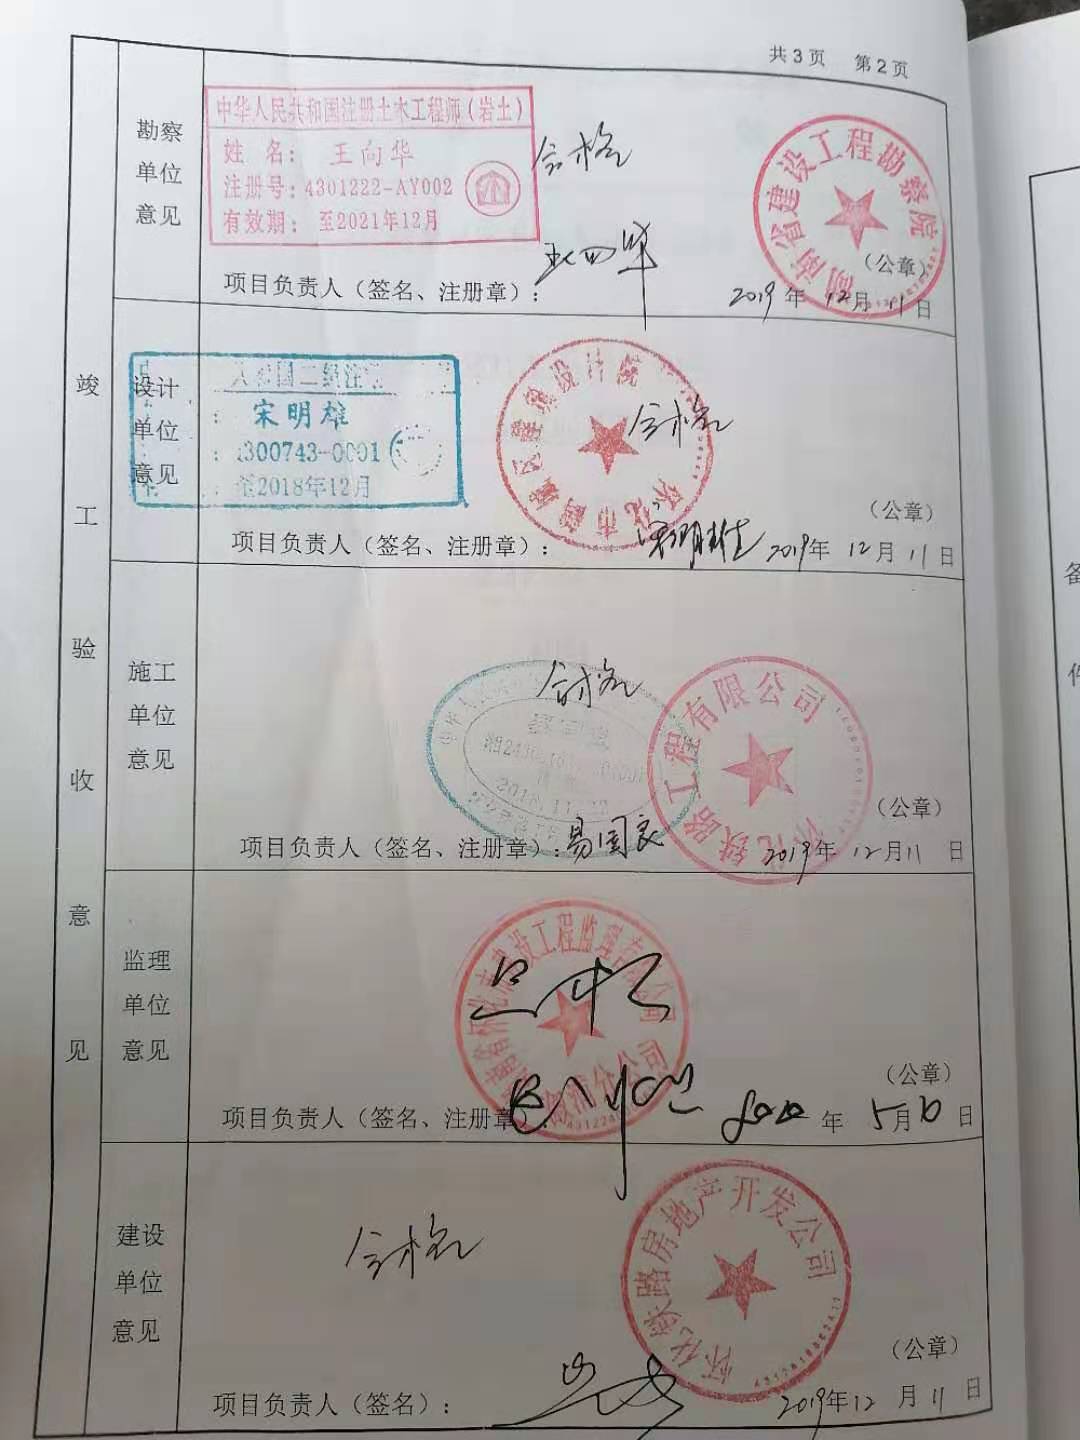 共3页 第2页
竣工验收意见
勘察单位意见
中华人民共和国注册土木工程师（岩土）
姓 名： 王向华
注册号：4301222-AY002
有效期： 至2021年12月
合格
湖南省建设工程勘察院
（公章）
项目负责人（签名、注册章）：王向华
2019年12月11日
设计单位意见
宋明雄
300743-0001
至2018年12月
合格
（公章）
项目负责人（签名、注册章）：宋明雄 2019年12月11日
施工单位意见
合格
怀化铁路工程有限公司
（公章）
项目负责人（签名、注册章）：易国良 2019年12月11日
监理单位意见
（公章）
项目负责人（签名、注册章）：
年5月 日
建设单位意见
合格
怀化铁路房地产开发公司
（公章）
项目负责人（签名）：
2019年12月11日